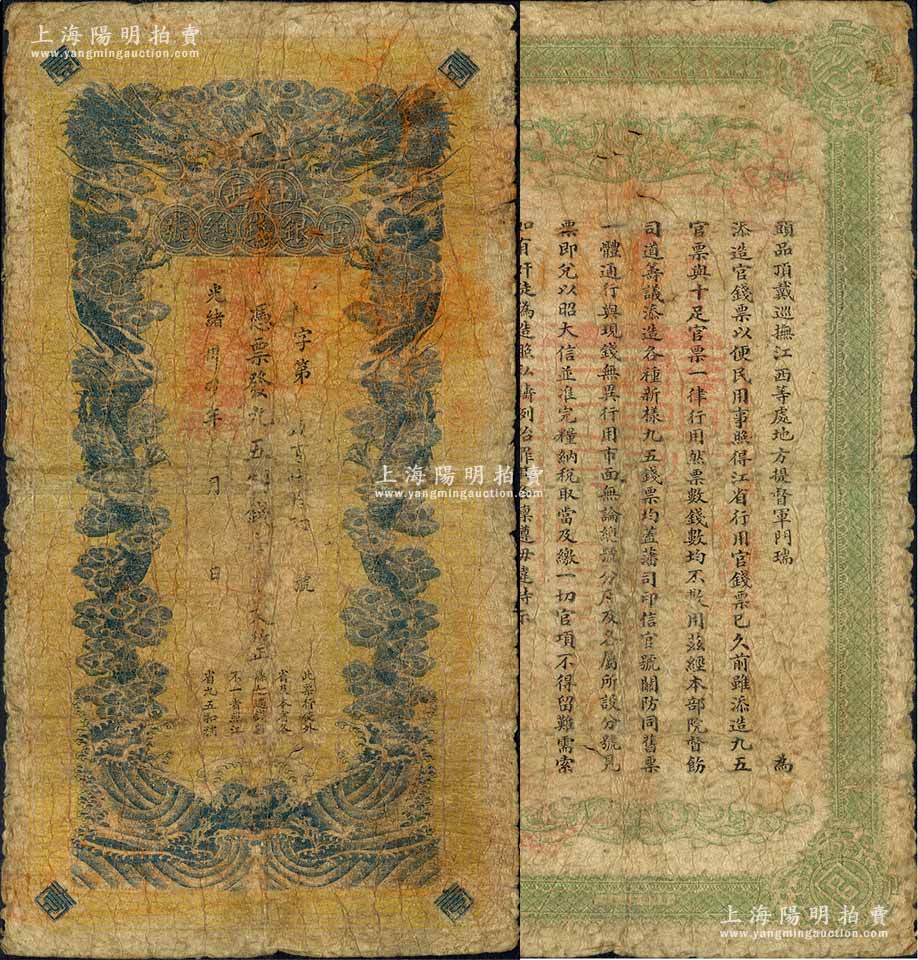 上海陽明拍賣
www.yangmingauction.com
江西
官銀錢總號
字第 號
憑票發九五制錢 文整
光緒 年 月 日
此票行使外
省及本省各
不一者照江
省九五扣算
上海陽明拍賣
www.yangmingauction.com
頭品頂戴巡撫江西等處地方提督軍門瑞 為
添造官錢票以便民用事照得江省行用官錢票已久前雖添造九五
官票與十足官票一律行用然票數錢數均不敷用茲經本部院督飭
司道籌議添造各種新樣九五錢票均蓋藩司印信官號關防同舊票
一體通行與現錢無異行用市面無論總號分局及各屬所設分號見
票即兌以昭大信並准完糧納稅取當及繳一切官項不得留難需索
如有奸徒偽造照私鑄例治罪 凜遵毋違特示
上海陽明拍賣
www.yangmingauction.com